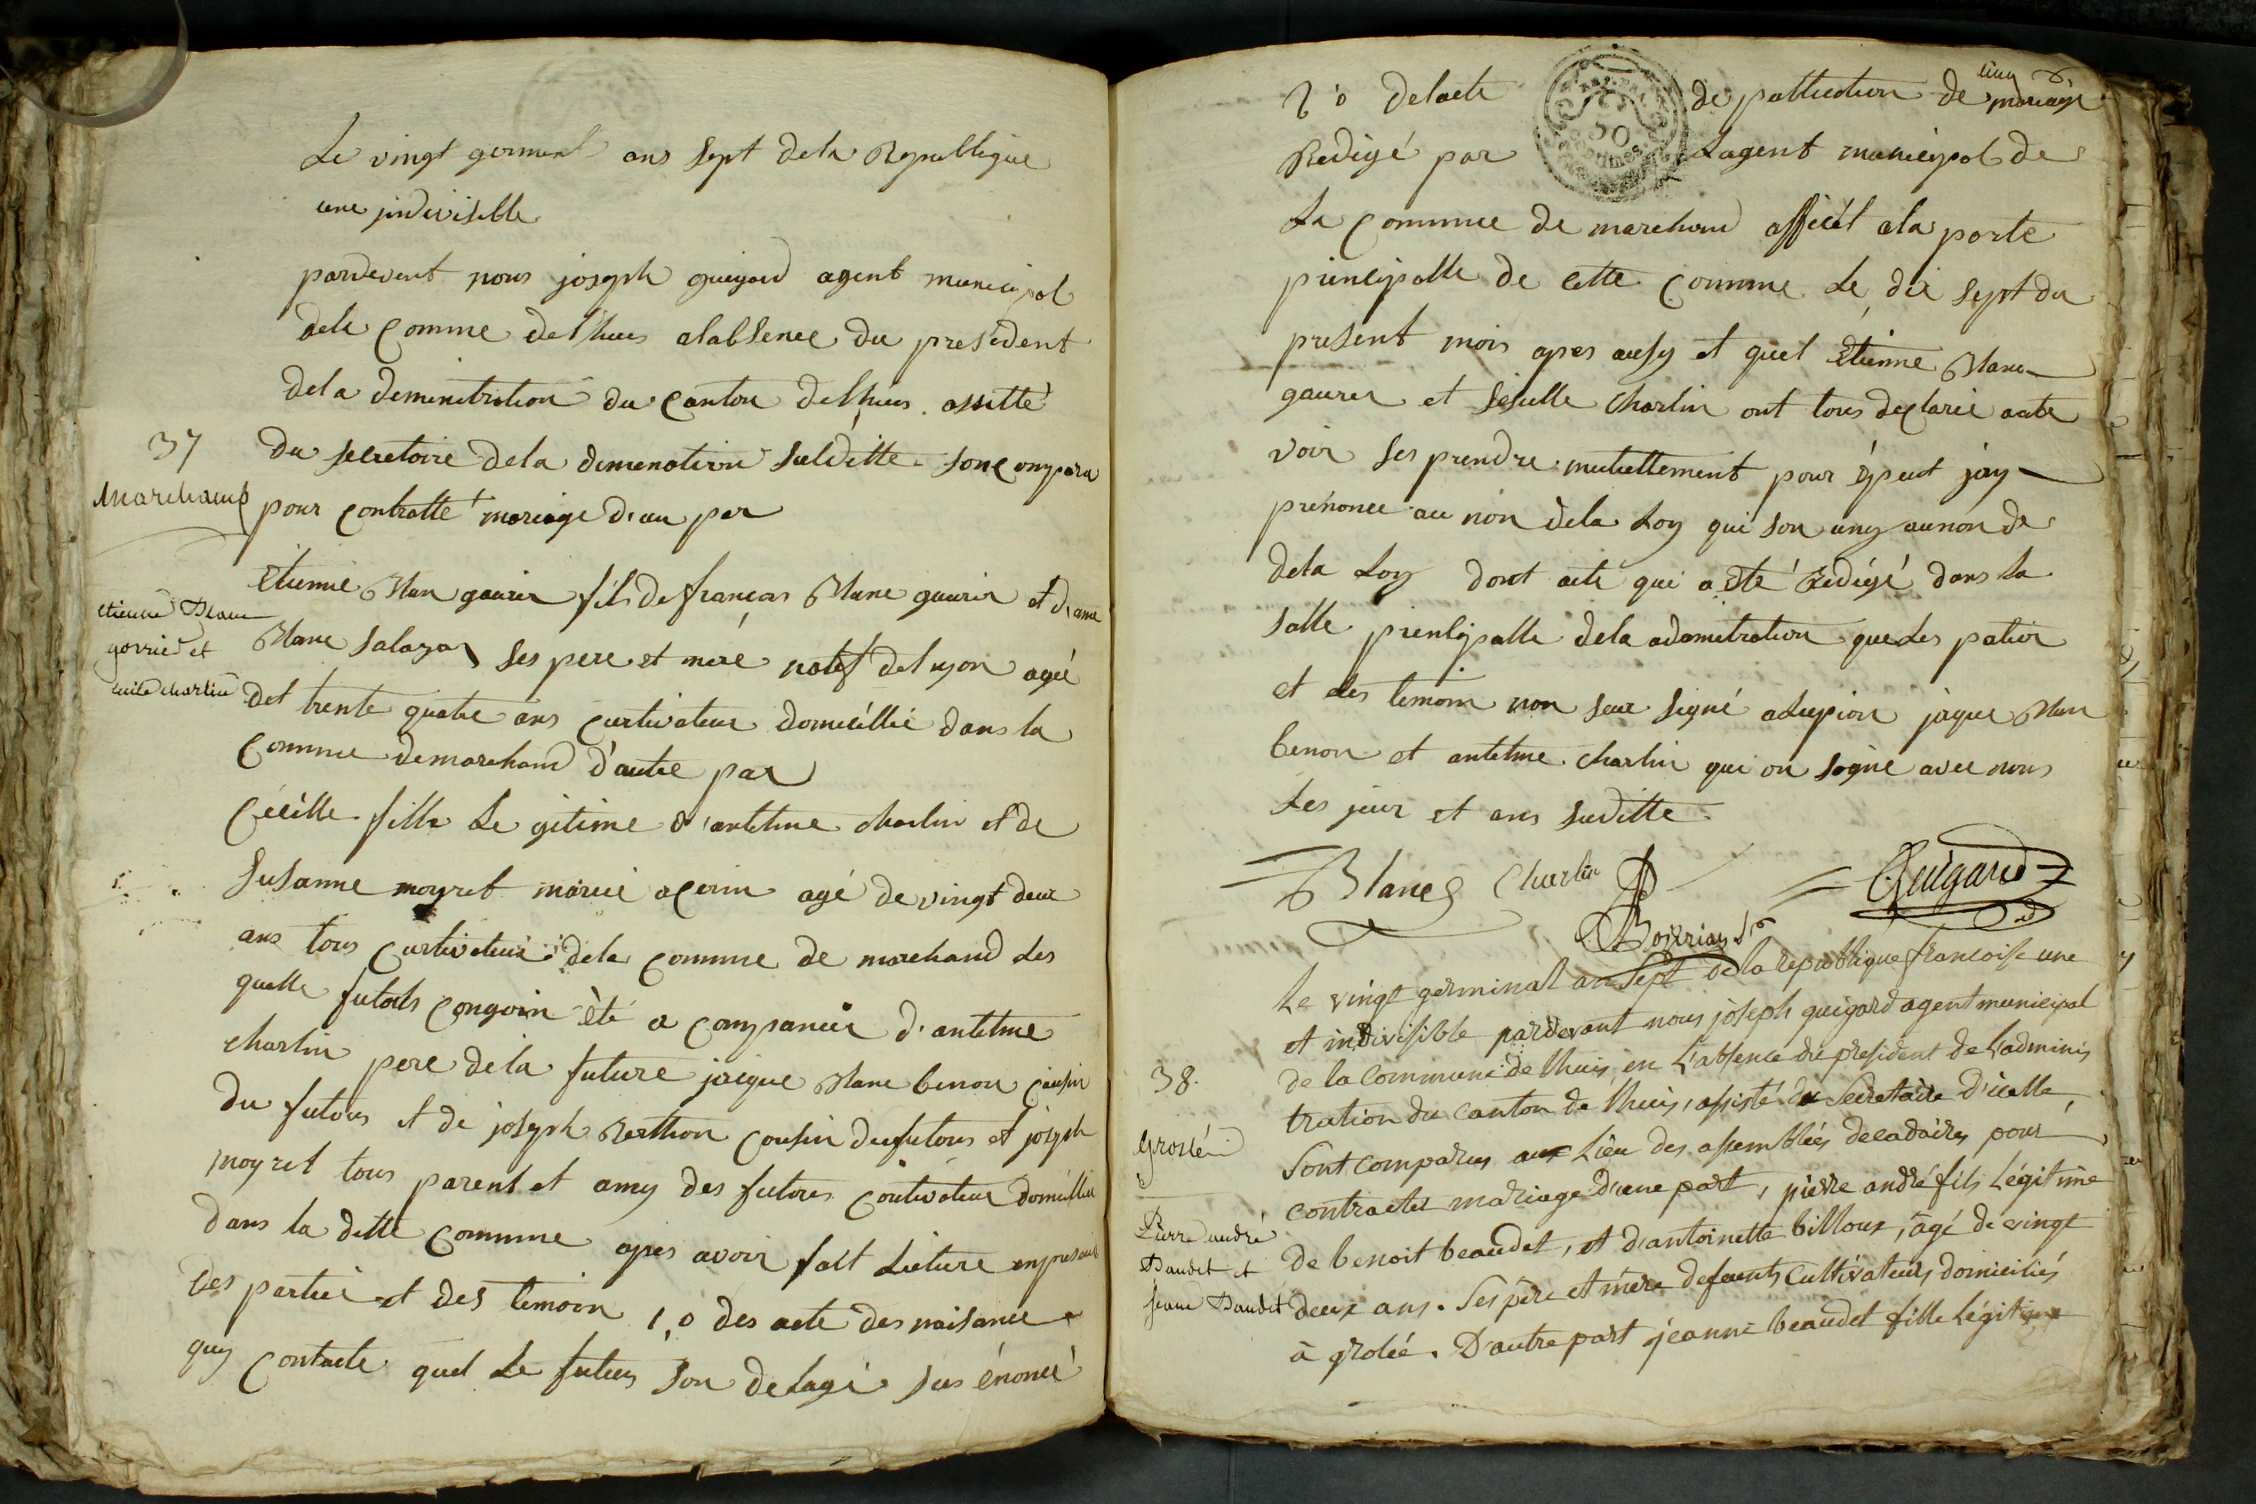 Le vingt germinal ans sept dela Republique
une jndivisible
pardevent nous joseph guigard agent municipal
dela Comme delhuis alabsence du president
dela deminitration du Canton delhuis assitté
37
du secretoire dela dimination susditte son Compara
Marchamp
pour Contratté mariage d'un par
Etienne Blan gaurin fils de francois Blanc gaurin et d'anne
etienne Blanc
Blanc Salazar ses pere et mere natif delujon ageé
govrin et
cecile charlin
det trente quatre ans Curtivateur domicillié dans la
Comme demarchand d'autre par
Cécille fille Le gitime d'antelme charlin et de
Susanne moyret mariei acerin agé de vingt deux
ans tous Curtivateur dela Comme de marchand Les
quelle futurs Congoin été a Companeir d'antelme
charlin pere dela future jacque Blanc benon Cousin
du futour et de joseph Berthon Cousin dufutour et joseph
moyret tous parent et amy des futour Coutivateur domicillié
dans la ditte Commune apres avoir fait Licture en presence
des partiei et des temoin 1,0 des acte des naisance
quy Contacte quel Le futurs son delagé sus énoncé
cinq
2,0 delacte de publication de mariage
Redigé par Lagent municipal de
La Commune de marchand affiché ala porte
principalle de cette Comme Le dix sept du
present mois apres ausy et quel Etienne Blanc
gaurin et Sesille Charlin ont tous declarie aute
voir ses prendre mutuettement pour épeut jay
prénonce au nón dela Loy qui son uny aunón de
dela Loy dont acte qui a été Redigé dans la
salle prinlipalle dela adamitration que Les patier
et des temoin non seux signé alupion jaque Blan
benon et antelme charlin qui on signé avec nous
Les jour et ans suditte
Blanc Charlin Guigard
Le vingt germinal an sept de la republique francoise une
et indivisible pardevant nous joseph guigard agent municipal
de la commune de lhuis, en l'absence du president de l'adminis
38.
tration du canton de lhuis, assisté du secretaire d'icelle,
Sont comparus au lieu des assemblées decadaires pour
Groslée
contracter mariage d'une part, pierre andré fils légitime
Pierre andré
de benoit beaudet, et d'antoinette billoux, agé de vingt
Baudet et
deux ans. Ses pere et mere defunts Cultivateurs domiciliés
jeanne Baudet
à grolée. D'autre part jeanne beaudet fille légitime